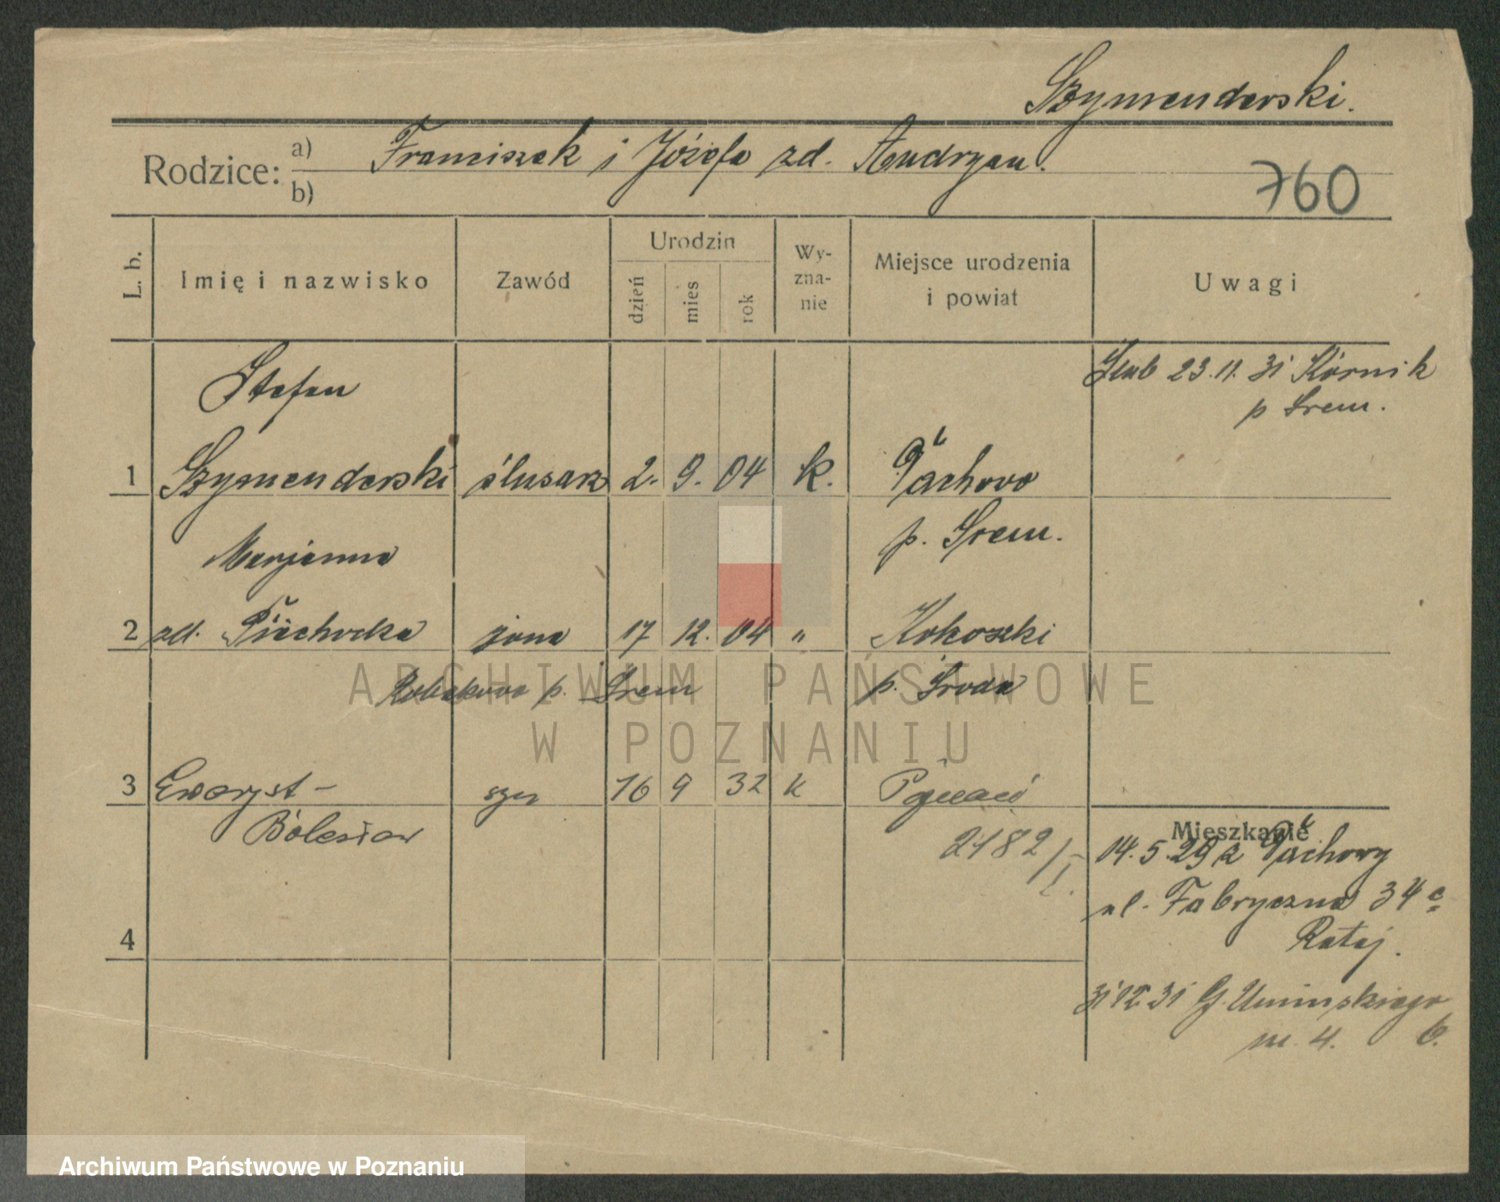 Szymenderski.
Rodzice: a) Franciszek i Józefa zd. Andrzan.
b)
760
L. b.
Imię i nazwisko
Zawód
Urodzin
dzień
mies
rok
Wy-
zna-
nie
Miejsce urodzenia
i powiat
Uwagi
Stefan
Ślub 23.11.31 Kórnik
p Śrem.
1 Szymenderski ślusarz 2. 9. 04 k. Pachowo
p. Śrem.
Marjanna
2 zd. Piechocka żona 17 12. 04 " Kokoszki
Robakowo p. Śrem p. Środa
3 Ewaryst – syn 16 9 32 k Poznań
Bolesław
2182/I
4
Mieszkanie
04.5.29 z Pachowy
ul. Fabryczna 34
Rataj.
31 12 31 G. Umińskiego
m. 4. 6.
ARCHIWUM PAŃSTWOWE
W POZNANIU
Archiwum Państwowe w Poznaniu